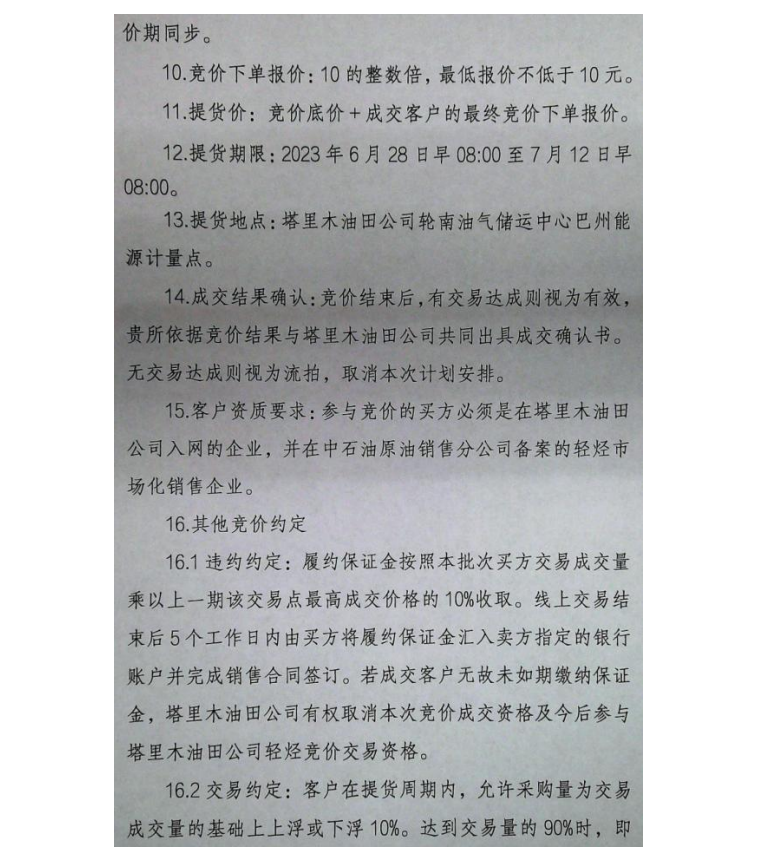 价期同步。
10.竞价下单报价：10的整数倍，最低报价不低于10元。
11.提货价：竞价底价+成交客户的最终竞价下单报价。
12.提货期限：2023年6月28日早08:00至7月12日早
08:00。
13.提货地点：塔里木油田公司轮南油气储运中心巴州能
源计量点。
14.成交结果确认：竞价结束后，有交易达成则视为有效，
贵所依据竞价结果与塔里木油田公司共同出具成交确认书。
无交易达成则视为流拍，取消本次计划安排。
15.客户资质要求：参与竞价的买方必须是在塔里木油田
公司入网的企业，并在中石油原油销售分公司备案的轻烃市
场化销售企业。
16.其他竞价约定
16.1违约约定：履约保证金按照本批次买方交易成交量
乘以上一期该交易点最高成交价格的10%收取。线上交易结
束后5个工作日内由买方将履约保证金汇入卖方指定的银行
账户并完成销售合同签订。若成交客户无故未如期缴纳保证
金，塔里木油田公司有权取消本次竞价成交资格及今后参与
塔里木油田公司轻烃竞价交易资格。
16.2交易约定：客户在提货周期内，允许采购量为交易
成交量的基础上上浮或下浮10%。达到交易量的90%时，即